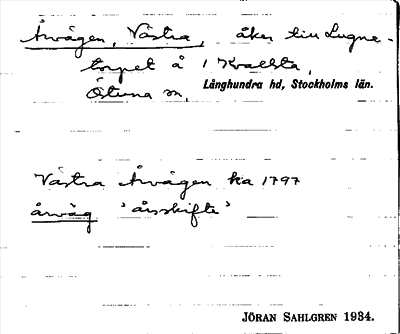 Årvägen, Västra, åker till Lugne-
torpet å 1 Kvallsta,
Östuna sn, Långhundra hd, Stockholms län.
Västra Årvägen ha 1797
årväg 'årsskifte'
JÖRAN SAHLGREN 1934.